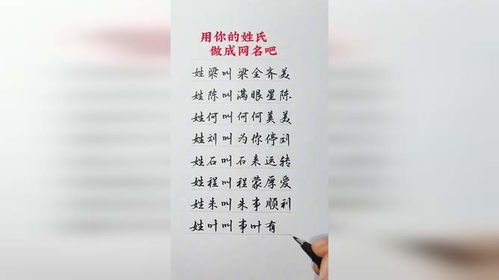 用你的姓氏
做成网名吧
姓梁叫梁全齐美
姓陈叫满眼星陈
姓何叫何何美美
姓刘叫为你停刘
姓石叫石来运转
姓程叫程蒙厚爱
姓朱叫朱事顺利
姓叶叫事叶有